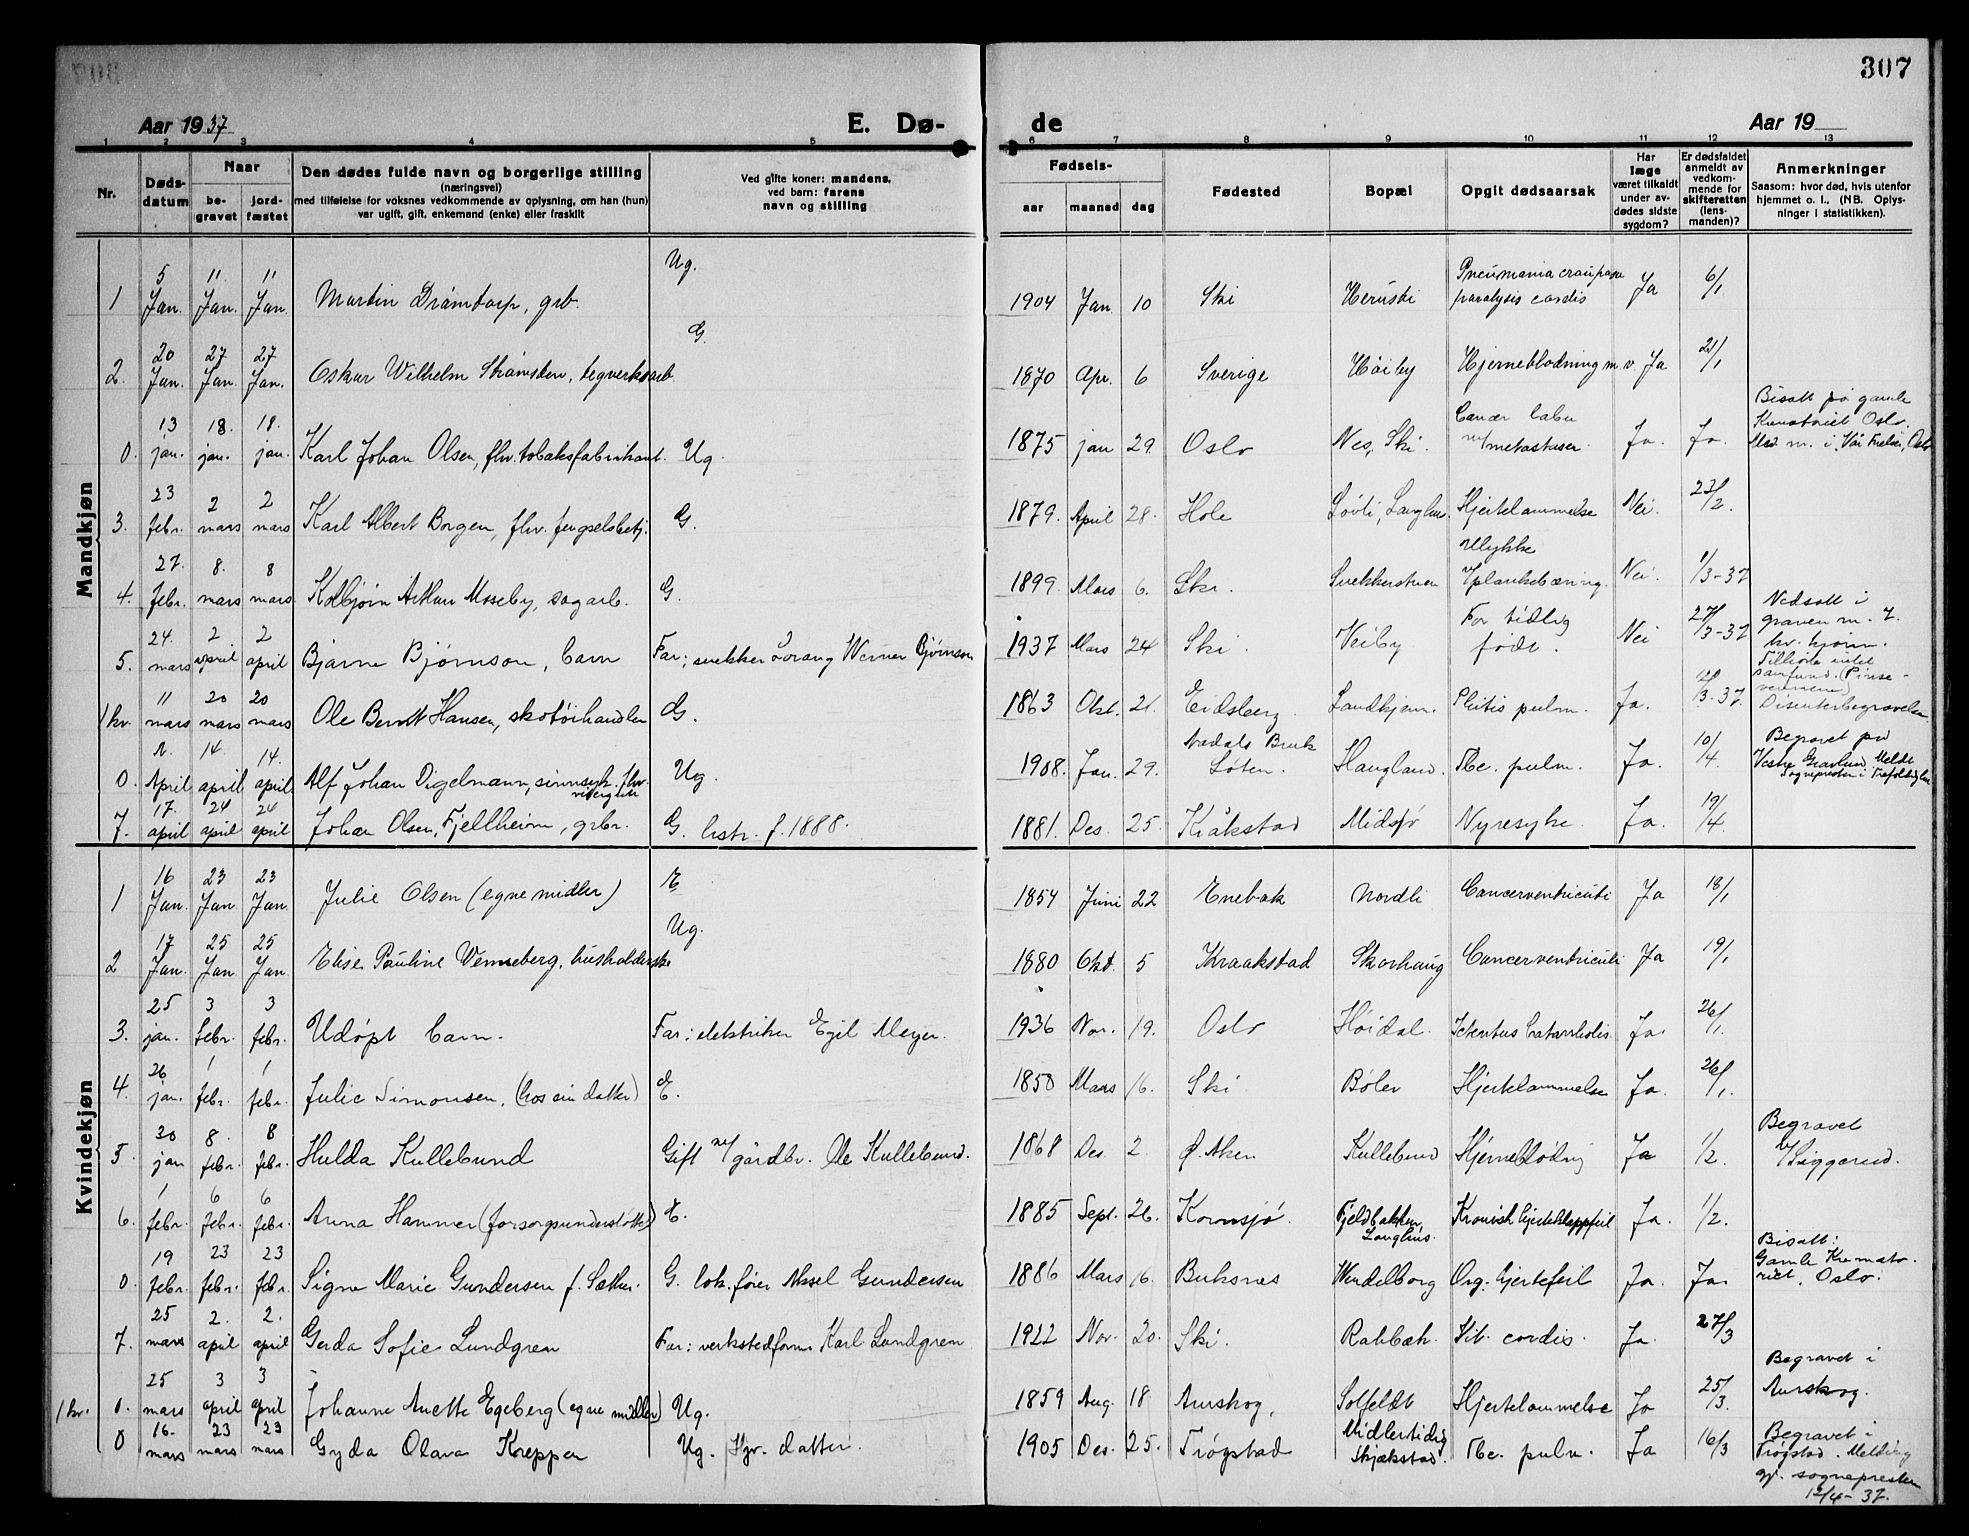 307
Aar 1937 E. Dø- de Aar 19
1 2 3 4 5 6 7 8 9 10 11 12 13
Nr. Døds-datum Naar be-gravet jord-fæstet Den dødes fulde navn og borgerlige stilling (næringsvei) med tilføielse for voksnes vedkommende av oplysning, om han (hun) var ugift, gift, enkemand (enke) eller fraskilt Ved gifte koner: mandens, ved barn: farens navn og stilling Fødsels- aar maaned dag Fødested Bopæl Opgit dødsaarsak Har læge været tilkaldt under av-dødes sidste sygdom? Er dødsfaldet anmeldt av vedkom-mende for skifteretten (lens-manden)? Anmerkninger Saasom: hvor død, hvis utenfor hjemmet o. l., (NB. Oplys-ninger i statistikken).
Mandkjøn
1 5 Jan. 11 Jan. 11 Jan. Martin Drømtorp, grb. Ug. 1904 Jan 10 Ski paralysis cordis Ja 6/1
2. 20 Jan. 27 Jan. 27 Jan. Oskar Wilhelm Strømsten, teglverksarb. G. 1870 Apr. 6 Sverige Høiby Hjerneblødning m. v. Ja 21/1
0. 13 jan. 18. jan. 18. jan. Karl Johan Olsen, fhv. tobaksfabrikant. Ug. 1875 jan 29. Oslo Nes, Ski. m/metastaser Ja. Ja. Bisatt på gamle Krematoriet Oslo.
3. 23 febr. 2 mars 2 mars Karl Albert Borgen, fhv. fengselsbetj. G. 1879. April 28. Hole Hjertelammelse Nei. 23/2.
4. 27. febr. 8. mars 8 mars Kolbjørn Arthur Mosseby, sagarb. G. 1899. Mars 6. Ski. Snekkerstuen Ulykke v/plankebæring. Nei. 1/3-37
5. 24. mars 2 april 2 april Bjarne Bjørnson, barn Far; snekker Werner Bjørnson 1937 Mars 24 Ski. Veiby For tidlig født. Nei 27/3-37 Nedsatt i graven m. 7. kv. kjønn.
1 kv. 11 mars 20 mars 20 mars Ole Berndt Hansen, skotøihandler G. 1863 Okt. 21. Eidsberg. Landkjenn. pulm. Ja. 3-37. Tilhørte intet samfund. (Pinsevennene) Disenterbegravelse
0. April 14. april 14. april Alf Johan Digelmann, sinnsyk. fhv. visergutt Ug. 1908. Jan. 29. Aadals Bruk Løten. Haugland. Tbc. pulm. Ja. 10/4. Begravet på Vestre Gravlund. Melde
7. 17. april 24 april 24 april Johan Olsen, Fjellheim, grbr. G. bestr. f. 1888. 1881. Des. 25. Kråkstad Midsjø Nyresyke. Ja. 19/4.
Kvindekjøn
1 16 Jan. 23 Jan 23 Jan. Julie Olsen (egne midler) E 1854 Juni 22 Enebak Nordli Cancerventriculi Ja 18/1
2 17 Jan. 25 Jan 25 Jan. Elise Pauline Wenneberg, husholderske Ug. 1880 Okt. 5 Kraakstad Skorhaug Cancerventriculi Ja 19/1
3. 25 jan. 3 febr. 3 febr. Udøpt barn. Far: elektriker Egil Meyer. 1936 Nov. 19. Oslo Høidal. Ja. 26/1.
4. 26 jan. 1 febr. 1 febr. Julie Simonsen, (hos sin datter) E. 1850 Mars 16. Ski Bøler Hjertelammelse Ja. 26/1.
5. 30 jan 8. febr. 8 febr. Hulda Kullebund Gift m/gårdbr. Ole Kullebund. 1868 Des. 2. Ø. Aker Kullebund Hjerneblødnig Ja 1/2. Begravet v/Siggerud.
6. 1 febr. 6 febr. 6 febr. Anna Hammer (forsorgsunderstøttet) E. 1885 Sept. 26. Kornsjø. Fjeldbakken, Langhus. Kronisk hjerteklappfeil Ja. 1/2.
0. 19 febr. 23 febr. 23 febr. Signe Marie Gundersen f. Sæther. G. lok.fører Aksel Gundersen 1886 Mars 16. Buksnes Wendelborg Org. hjertefeil Ja. Ja. Bisatt: Gamle Krematoriet, Oslo.
7. 25 mars 2. april 2. april Gerda Sofie Lundgren Far: verkstedform Karl Lundgren 1922 Nov. 20. Ski. Rahbæk. Vit. cordis. Ja. 27/3
1 kv. 0. 25 mars 3 april 3 april Johanne Anette Egeberg (egne midler) Ug. 1859 Aug. 18 Aurskog, Solfeldt Hjertelammelse Ja 25/3. Begravet i Aurskog.
0 16. mars 23 mars 23 mars Gyda Olava Kreppen Ug. Hjv. datter. 1905 Des. 25. Trøgstad Midlertidig Skjækstad. Tbc. pulm. Ja 16/3 Begravet i Trøgstad. Melding gj. sognepresten 12/4-37.